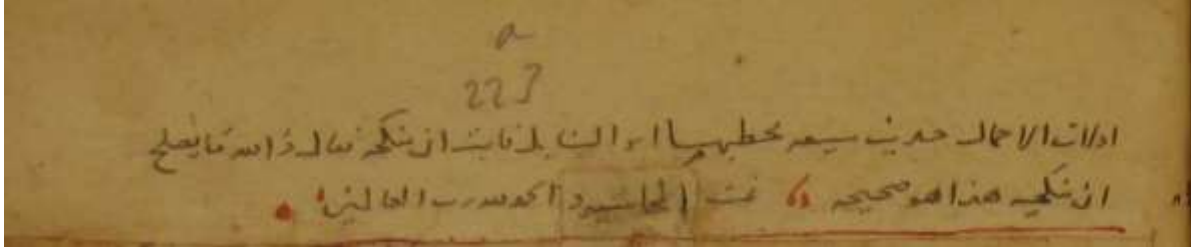 a
223
اولات الاحمال حديث سبيعه خطبها ابو السنابل فابت ان تنكحه فقال والله ما يصلح
ان تنكحيه هذا هو صحيحه تمت الحاشيه الحمد لله رب العالمين